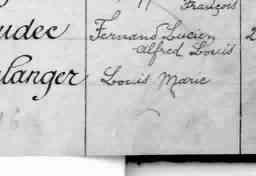 François
udec Fernand Lucien
Alfred Louis
langer Louis Marie